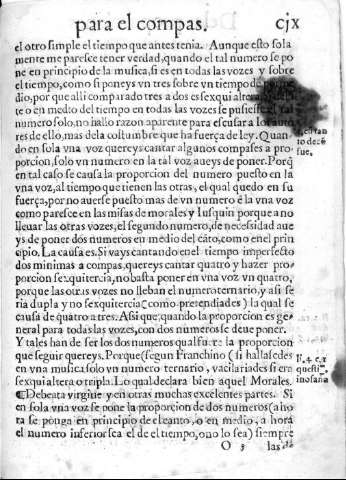 para el compas. cjx
el otro simple el tiempo que antes tenia. Aunque esto sola
mente me paresce tener verdad, quando el tal numero se po
ne en principio de la musica, si es en todas las vozes y sobre
el tiempo, como si poneys vn tres sobre vn tiempo de por me
dio, por que alli comparado tres a dos es sexqui altera
te o en medio del tiempo en todas las vozes se pusiesse tal
numero solo, no hallo razon aparente para escusar a los
res de ello, mas de la costumbre que ha fuerça de ley. Quan-
do en sola vna voz quereys cantar algunos compases a pro
porcion, solo vn numero en la tal voz aueys de poner. Porq̃
en tal caso se causa la proporcion del numero puesto en la
vna voz, al tiempo que tienen las otras, el qual quedo en su
fuerça, por no auerse puesto mas de vn numero ē la vna voz
como paresce en las misas de morales y Iusquin porque a no
lleuar las otras vozes, el segundo numero, de necessidad aue
ys de poner dos numeros en medio del cāto, como en el prin
cipio. La causa es. Si vays cantando en el tiempo imperfecto
dos minimas a compas, quereys cantar quatro y hazer pro
porcion sexquitercia, no basta poner en vna voz vn quatro,
porque las otras vozes no lleban el numero ternario, y asi se
ria dupla y no sexquitercia (como pretendiades) la qual se
causa de quatro a tres. Assi que, quando la proporcion es ge-
neral para todas las vozes, con dos numeros se deue poner.
Y tales han de ser los dos numeros qual fuere la proporcion
que seguir quereys. Porque (segun Franchino (si hallasedes
en vna musica solo vn numero ternario, vacilariades si era
sexquialtera o tripla. Lo qual declara bien aquel Morales.
¶Debeata virgine y en otras muchas excelentes partes. Si
en sola vna voz se pone la proporcion de dos numeros (aho
ra se ponga en principio de el canto, o en medio, a hora
el numero inferior sea el de el tiempo, o no lo sea) siempre
O 3 las
to dece
fue.
li. 4. c. x
questi